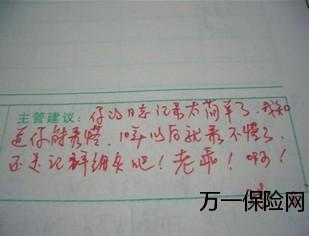 主管建议：你的日志记录太简单了，我知
道你能看懂，10年以后就看不懂了，
还是记详细点吧！老乖！啊！
万一保险网